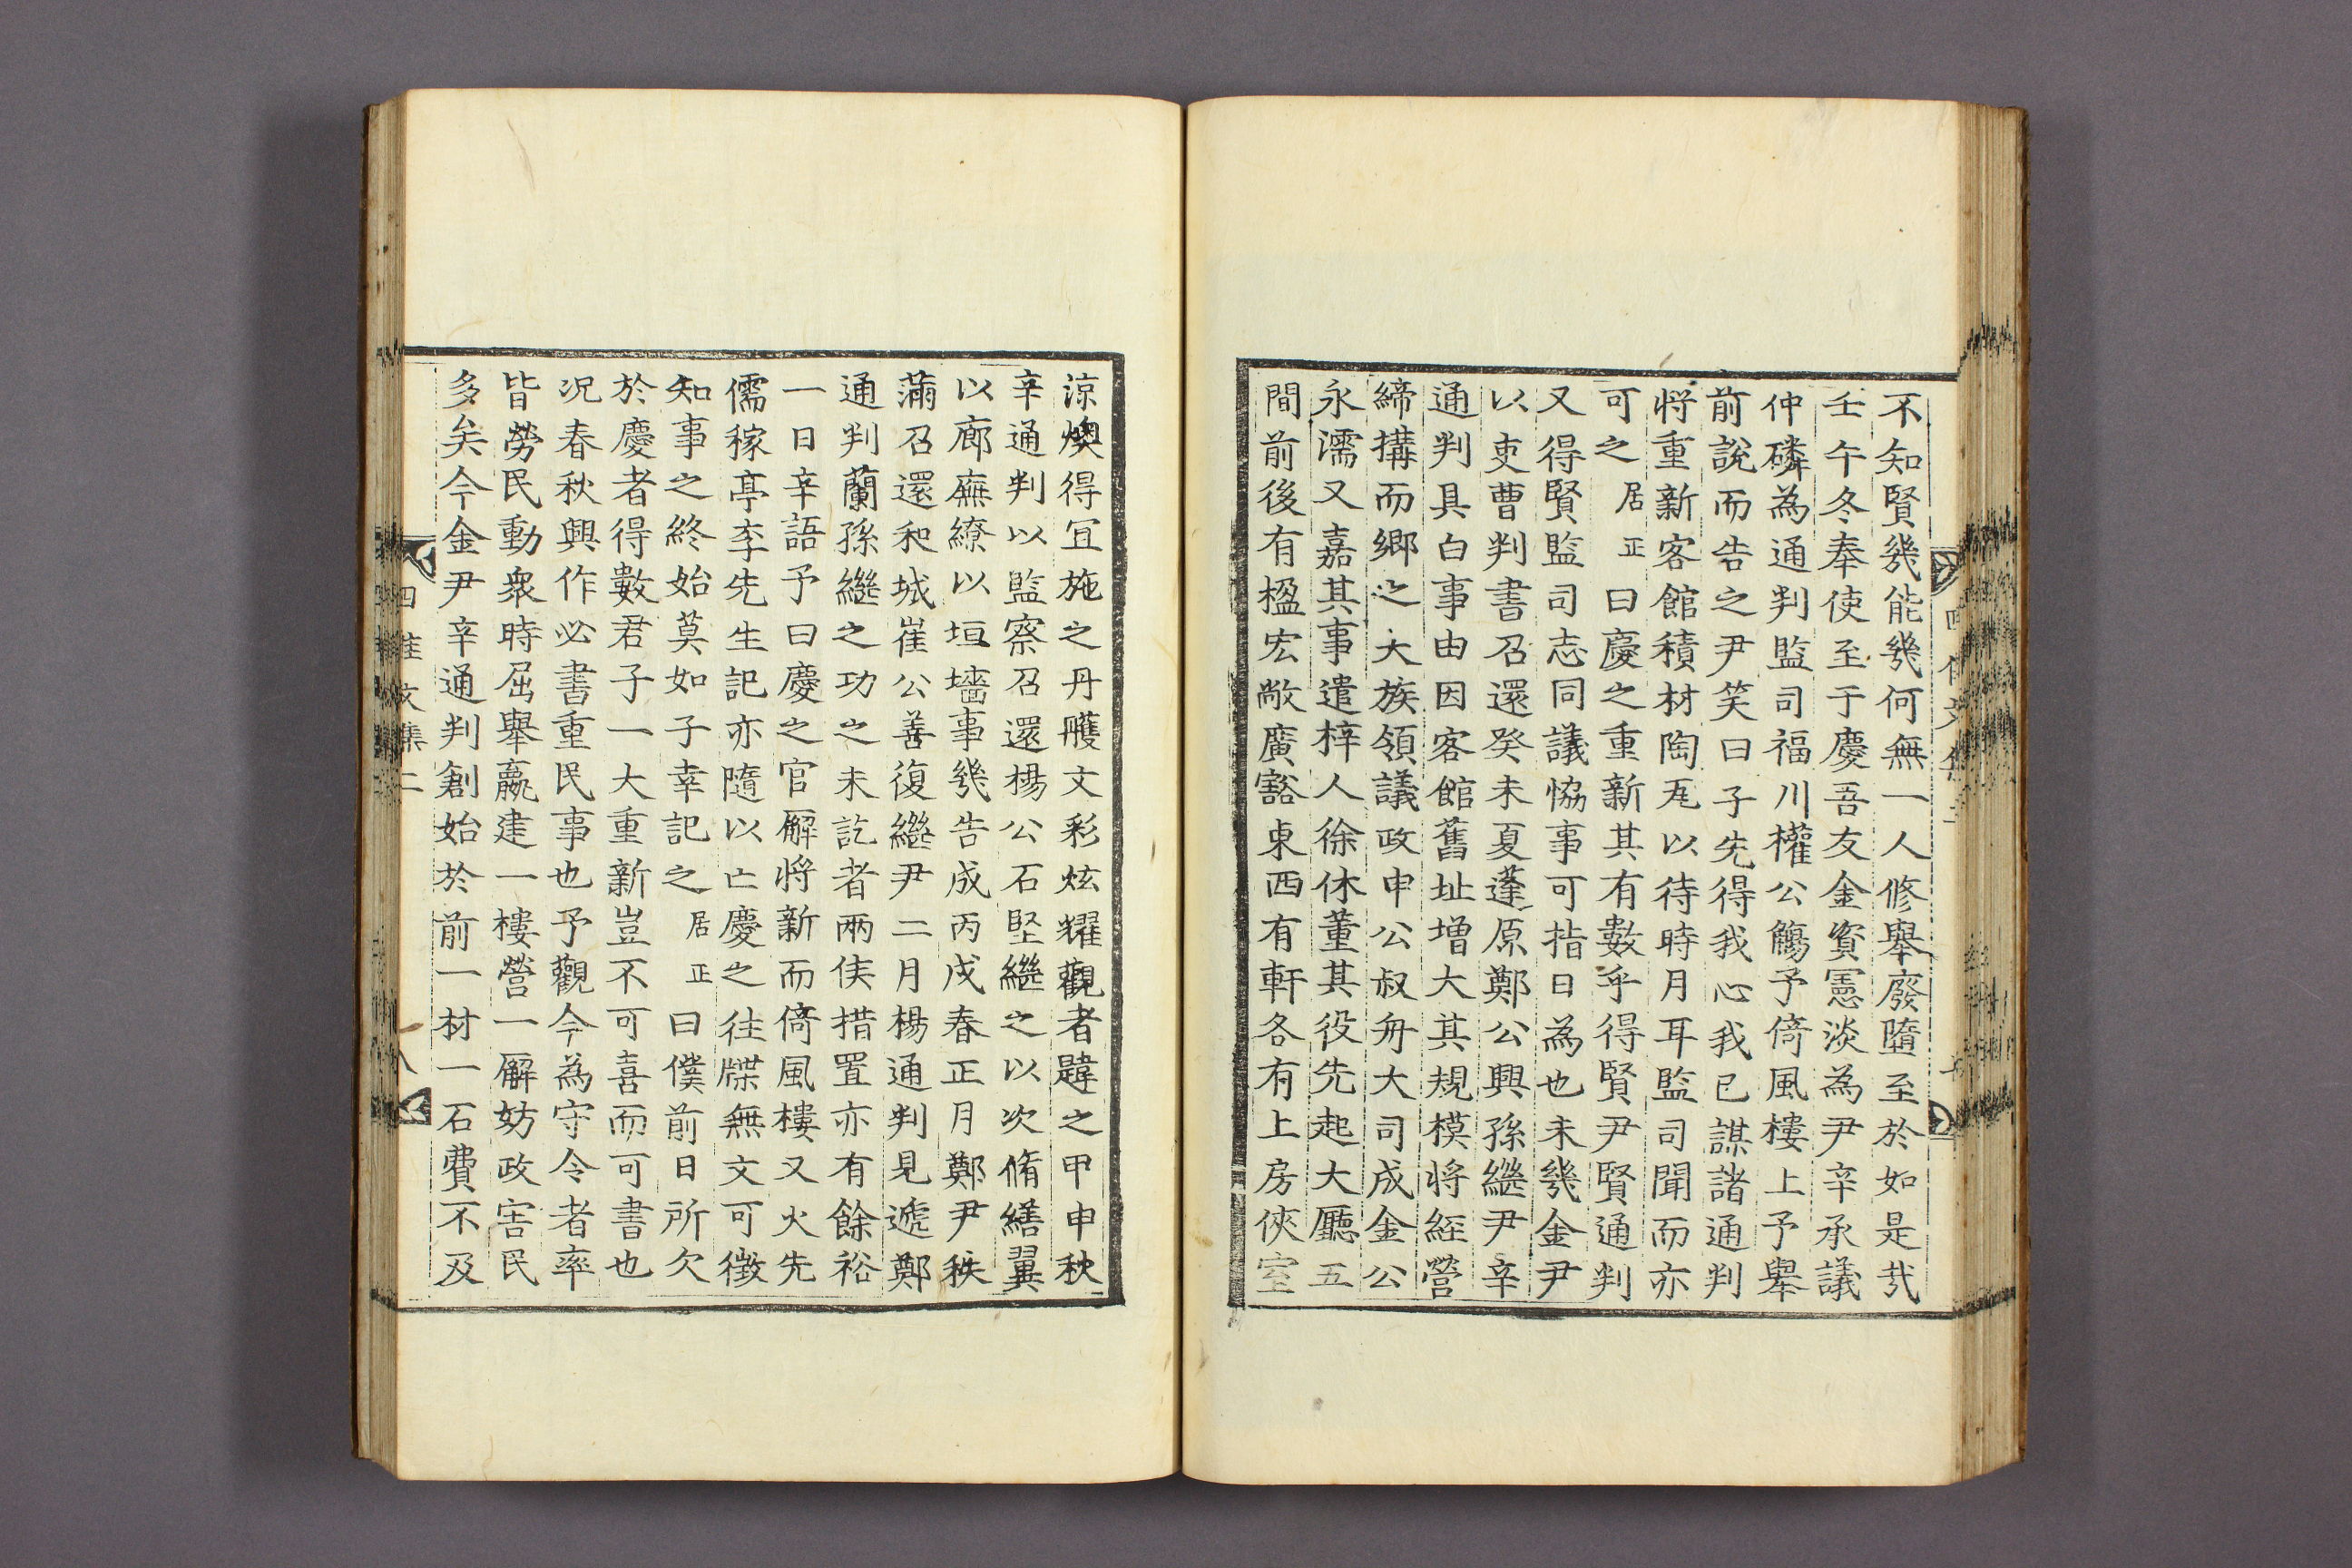 不知賢幾能幾何無一人修舉廢墮至於如是㢤
壬午冬奉使至于慶吾友金資憲淡為尹辛承議
仲磷為通判監司福川權公觴予倚風樓上予舉
前說而告之尹笑曰子先得我心我已謀諸通判
將重新客館積材陶瓦以待時月耳監司聞而亦
可之居正曰慶之重新其有數乎得賢尹賢通判
又得賢監司志同議恊事可指日為也未幾金尹
以吏曹判書召還癸未夏蓬原鄭公興孫繼尹辛
通判具白事由因客館舊址增大其規模将經營
締搆而鄉之大族領議政申公叔舟大司成金公
永濡又嘉其事遣梓人徐休董其役先起大廳五
間前後有楹宏敞廣豁東西有軒各有上房俠室
涼燠得冝施之丹雘文彩炫耀觀者韙之甲申秋
辛通判以監察召還楊公石堅繼之以次脩繕翼
以廊廡繚以垣墻事幾告成丙戌春正月鄭尹秩
滿召還和城崔公善復繼尹二月楊通判見遞鄭
通判蘭孫繼之功之未訖者兩侯措置亦有餘裕
一日辛語予曰慶之官廨將新而倚風樓又火先
儒稼亭李先生記亦隨以亡慶之徃牒無文可徵
知事之終始莫如子幸記之居正曰僕前日所欠
於慶者得數君子一大重新豈不可喜而可書也
况春秋興作必書重民事也予觀今為守令者率
皆勞民動衆時屈舉贏建一樓營一廨妨政害民
多矣今金尹辛通判創始於前一材一石費不及
四佳文集二
八